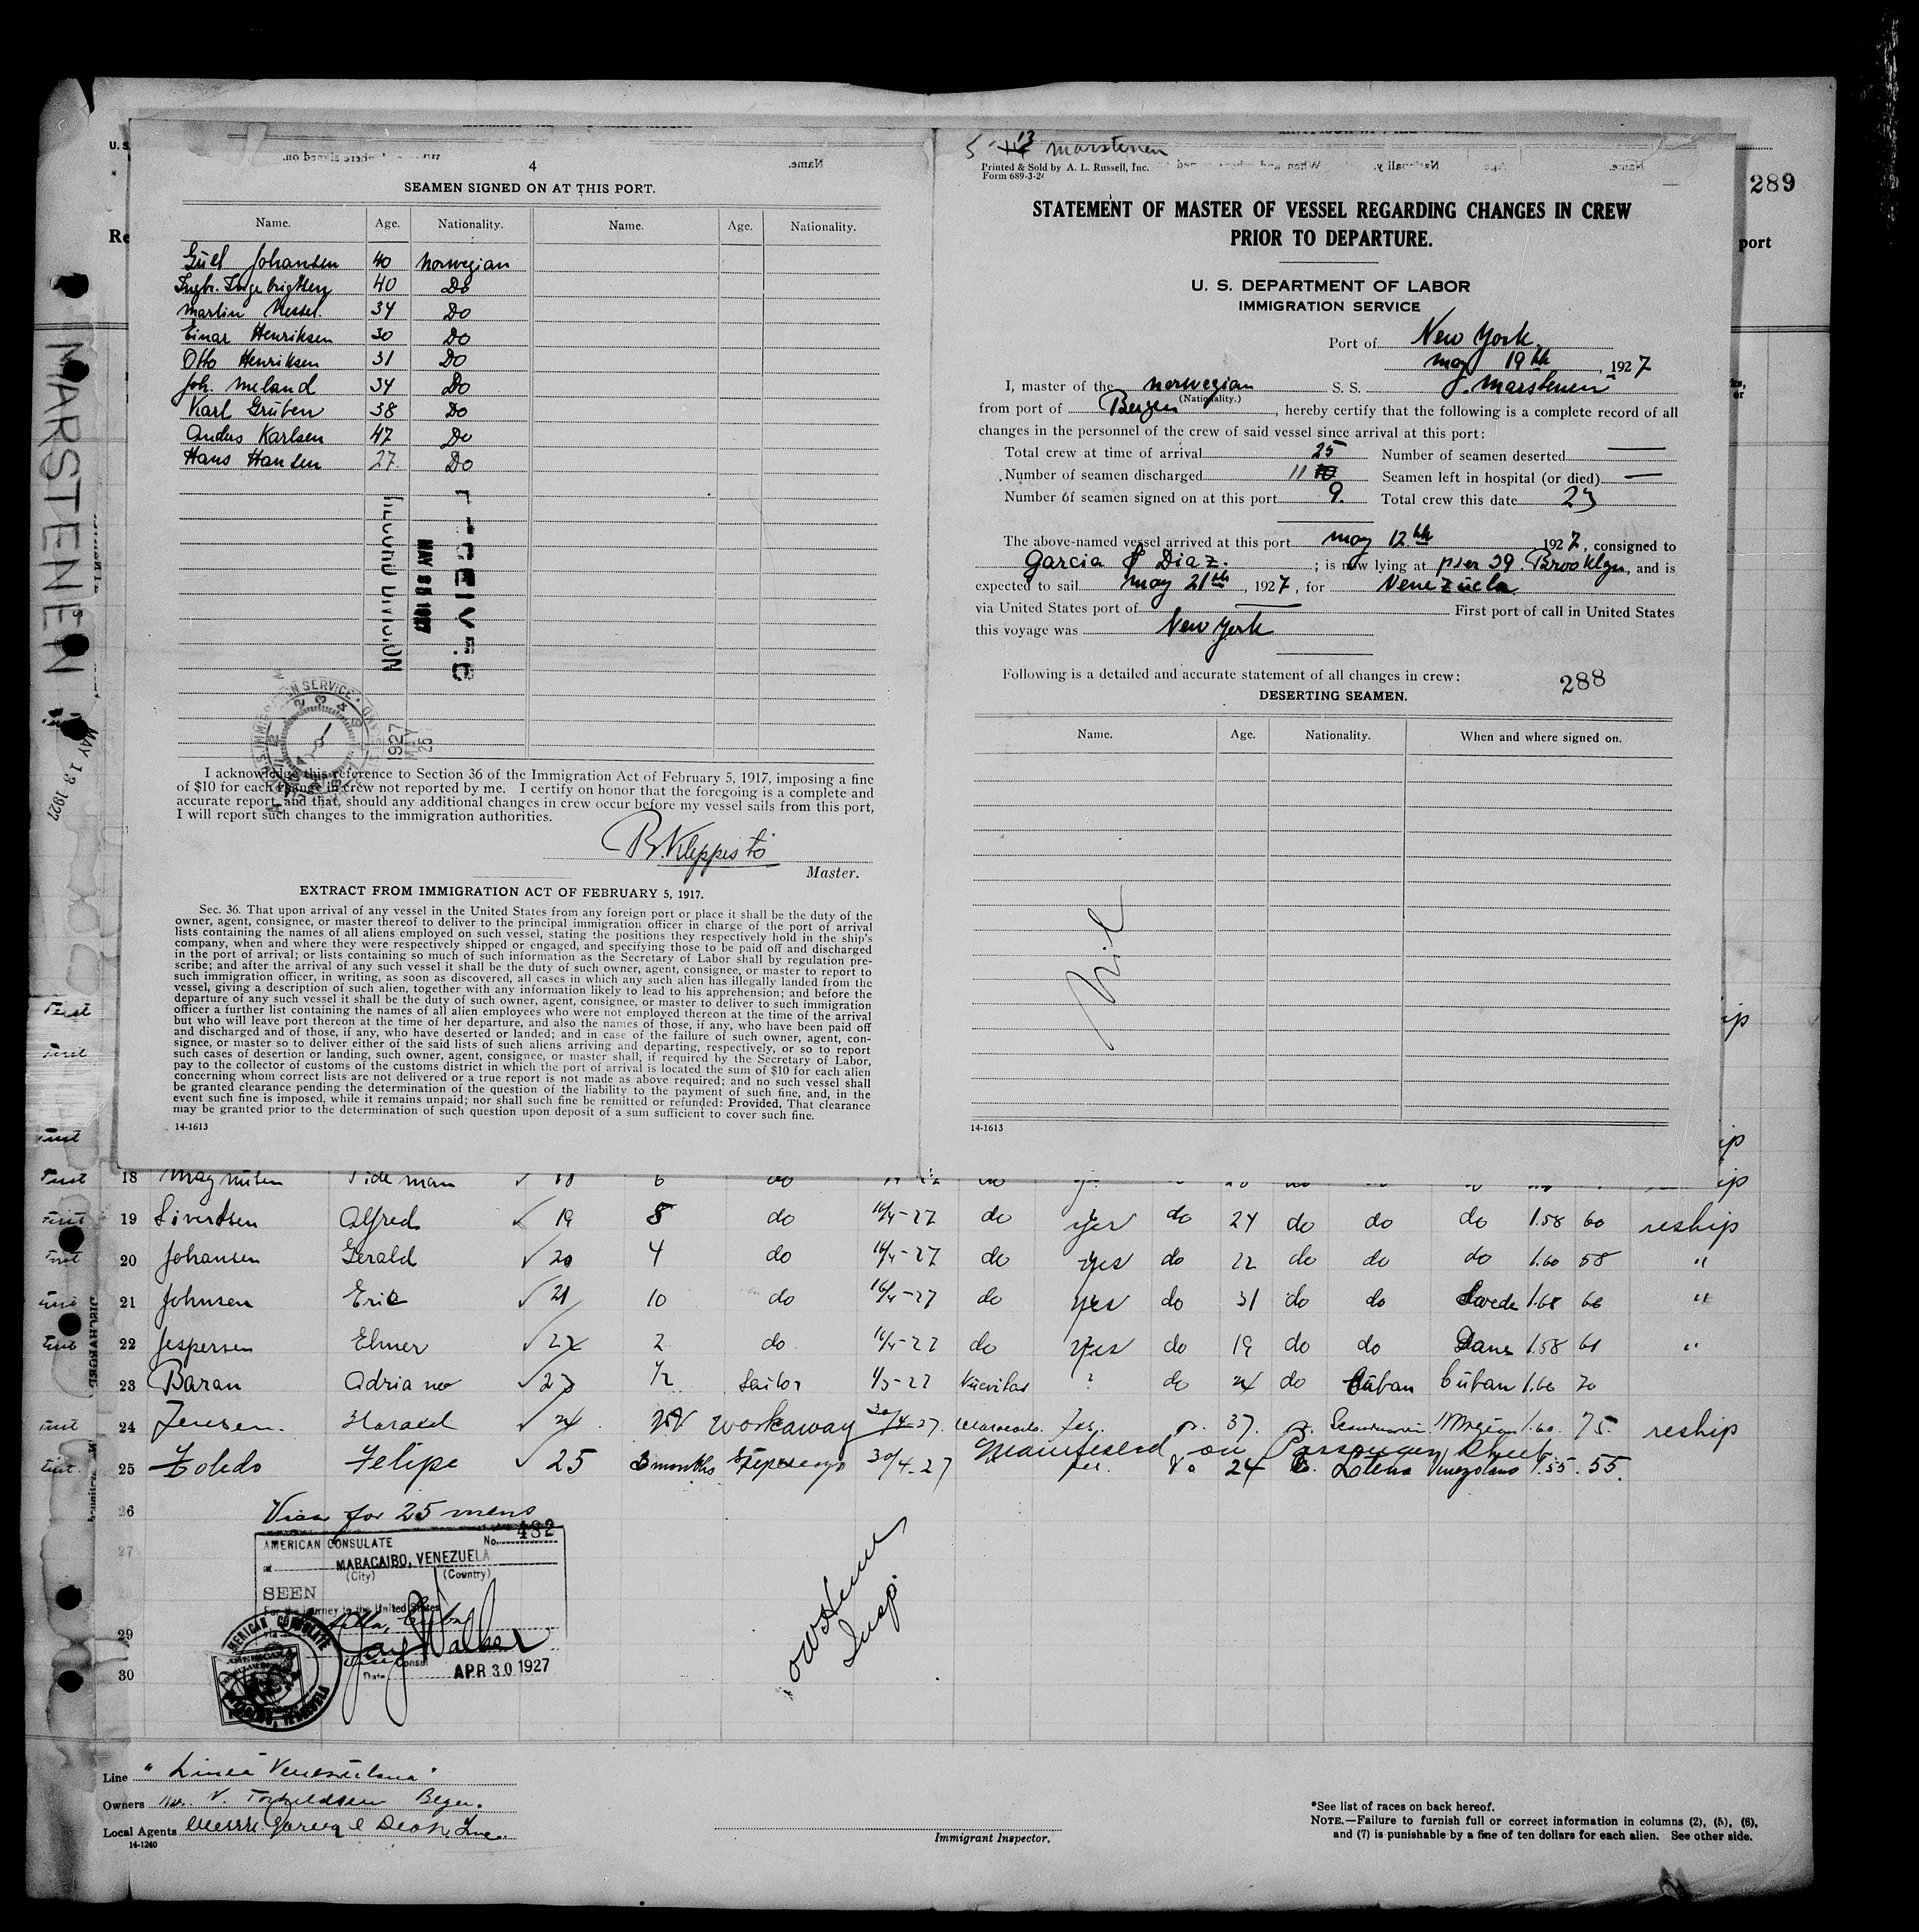 4
SEAMEN SIGNED ON AT THIS PORT.
Name. Age. Nationality. Name. Age. Nationality.
Johansen 40 Norwegian
Ingebrigtsen 40 Do
Martin Nessel. 34 Do
Einar Henriksen 30 Do
Otto Henriksen 31 Do
Joh. Meland 34 Do
Karl Grüben 38 Do
Anders Karlsen 47 Do
Hans Hansen 27. Do
RECEIVED
MAY 25 1927
RECORD DIVISION
1927
MAY
25
I acknowledge this reference to Section 36 of the Immigration Act of February 5, 1917, imposing a fine
of $10 for each change in crew not reported by me. I certify on honor that the foregoing is a complete and
accurate report, and that, should any additional changes in crew occur before my vessel sails from this port,
I will report such changes to the immigration authorities.
B. Kleppestö
Master.
EXTRACT FROM IMMIGRATION ACT OF FEBRUARY 5, 1917.
Sec. 36. That upon arrival of any vessel in the United States from any foreign port or place it shall be the duty of the
owner, agent, consignee, or master thereof to deliver to the principal immigration officer in charge of the port of arrival
lists containing the names of all aliens employed on such vessel, stating the positions they respectively hold in the ship's
company, when and where they were respectively shipped or engaged, and specifying those to be paid off and discharged
in the port of arrival; or lists containing so much of such information as the Secretary of Labor shall by regulation pre-
scribe; and after the arrival of any such vessel it shall be the duty of such owner, agent, consignee, or master to report to
such immigration officer, in writing, as soon as discovered, all cases in which any such alien has illegally landed from the
vessel, giving a description of such alien, together with any information likely to lead to his apprehension; and before the
departure of any such vessel it shall be the duty of such owner, agent, consignee, or master to deliver to such immigration
officer a further list containing the names of all alien employees who were not employed thereon at the time of the arrival
but who will leave port thereon at the time of her departure, and also the names of those, if any, who have been paid off
and discharged and of those, if any, who have deserted or landed; and in case of the failure of such owner, agent, con-
signee, or master so to deliver either of the said lists of such aliens arriving and departing, respectively, or so to report
such cases of desertion or landing, such owner, agent, consignee, or master shall, if required by the Secretary of Labor,
pay to the collector of customs of the customs district in which the port of arrival is located the sum of $10 for each alien
concerning whom correct lists are not delivered or a true report is not made as above required; and no such vessel shall
be granted clearance pending the determination of the question of the liability to the payment of such fine, and, in the
event such fine is imposed, while it remains unpaid; nor shall such fine be remitted or refunded: Provided, That clearance
may be granted prior to the determination of such question upon deposit of a sum sufficient to cover such fine.
14-1613
5 13 Marstenen
Printed & Sold by A. L. Russell, Inc.
Form 689-3-24
STATEMENT OF MASTER OF VESSEL REGARDING CHANGES IN CREW
PRIOR TO DEPARTURE.
U. S. DEPARTMENT OF LABOR
IMMIGRATION SERVICE
Port of New York.
May 19th, 1927
I, master of the Norwegian S. S. J. Marstenen
(Nationality.)
from port of Bergen, hereby certify that the following is a complete record of all
changes in the personnel of the crew of said vessel since arrival at this port:
Total crew at time of arrival 25 Number of seamen deserted —
Number of seamen discharged 11 10 Seamen left in hospital (or died) —
Number of seamen signed on at this port 9. Total crew this date 23
The above-named vessel arrived at this port May 12th 1927, consigned to
Garcia & Diaz. ; is now lying at pier 39 Brooklyn, and is
expected to sail May 21th, 1927, for Venezuela
via United States port of — First port of call in United States
this voyage was New York
Following is a detailed and accurate statement of all changes in crew:
288
DESERTING SEAMEN.
Name. Age. Nationality. When and where signed on.
Nil
14-1613
289
port
MARSTENEN
MAY 13 1927
18 Magnusen Tideman
19 Sivertsen Alfred 19 8 do 16/4-27 do yes do 24 do do do 1.58 60 reship
20 Johansen Gerald 20 4 do 16/4-27 do yes do 22 do do do 1.60 58 "
21 Johnsen Eric 21 10 do 16/4-27 do yes do 31 do do Swede 1.68 66 "
22 Jespersen Elmer 22 2 do 16/4-27 do yes do 19 do do Dane 1.58 61 "
23 Baran Adriano 23 1/2 Sailor 1/5-27 Nuevitas ? do 24 do Cuban Cuban 1.60 70
24 Jensen. Harald 24 workaway 30/4-27. Maracaibo. Yes. 37. 1.60. 75. reship
Manifested on Passenger Sheet
25 Toledo Felipe 25 3 months 30/4-27 24 Latino Venezolano 1.55. 55.
26
Visa for 25 mens
27
29
30
AMERICAN CONSULATE No. 482
at MARACAIBO, VENEZUELA
(City) (Country)
SEEN
For the journey to the United States
Jay Walker
Consul
Date APR 30 1927
AMERICAN CONSULATE
Insp.
Line "Linea Venezuelana"
Owners V. Torkildsen Bergen.
Local Agents Messrs. Garcia & Diaz Inc.
14-1240
Immigrant Inspector.
*See list of races on back hereof.
NOTE.—Failure to furnish full or correct information in columns (2), (5), (6),
and (7) is punishable by a fine of ten dollars for each alien. See other side.